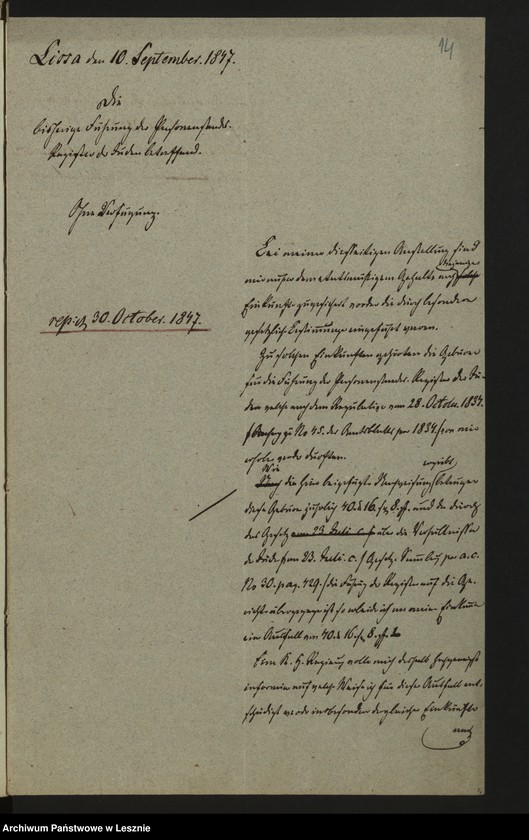 14
Lissa den 10. September. 1847.
Die
bisherige Führung der Personenstands-
Register der Juden betreffend.
Ohne Verfügung.
repr. 30. October. 1847.
Bei meiner diesseitigen Anstellung sind
mir außer dem etatsmäßigen Gehalte auch diejenigen
Einkünfte zugesichert worden die durch besondere
gesetzliche Bestimmungen eingeführt waren.
Zu solchen Einkünften gehörten die Gebüren
für die Führung der Personenstands-Register der Ju-
den welche nach dem Regulative vom 28. October 1834.
No 45. des Amtsblatts pro 1834 von mir
erhoben werden durften.
Wie die hier beigefügte Nachweisung ergiebt, betragen
diese Gebüren jährlich 40 16. 8. und da durch
das Gesetz vom 23. Juli c. über die Verhältnisse
der Juden vom 23. Juli. c. Gesetz-Sammlung pro a. c.
No 30. pag. 429. die Führung der Register auf die Ge-
richte übergegangen ist so erleide ich an meinen Einkommen
ein Ausfall von 40 16. 8.
Eine K. H. Regierung wolle mich deshalb hochgeneigt
informiren auf welche Weise ich für diesen Ausfall ent-
schädigt werde insbesondere dergleichen Einkünfte
auch
Archiwum Państwowe w Lesznie